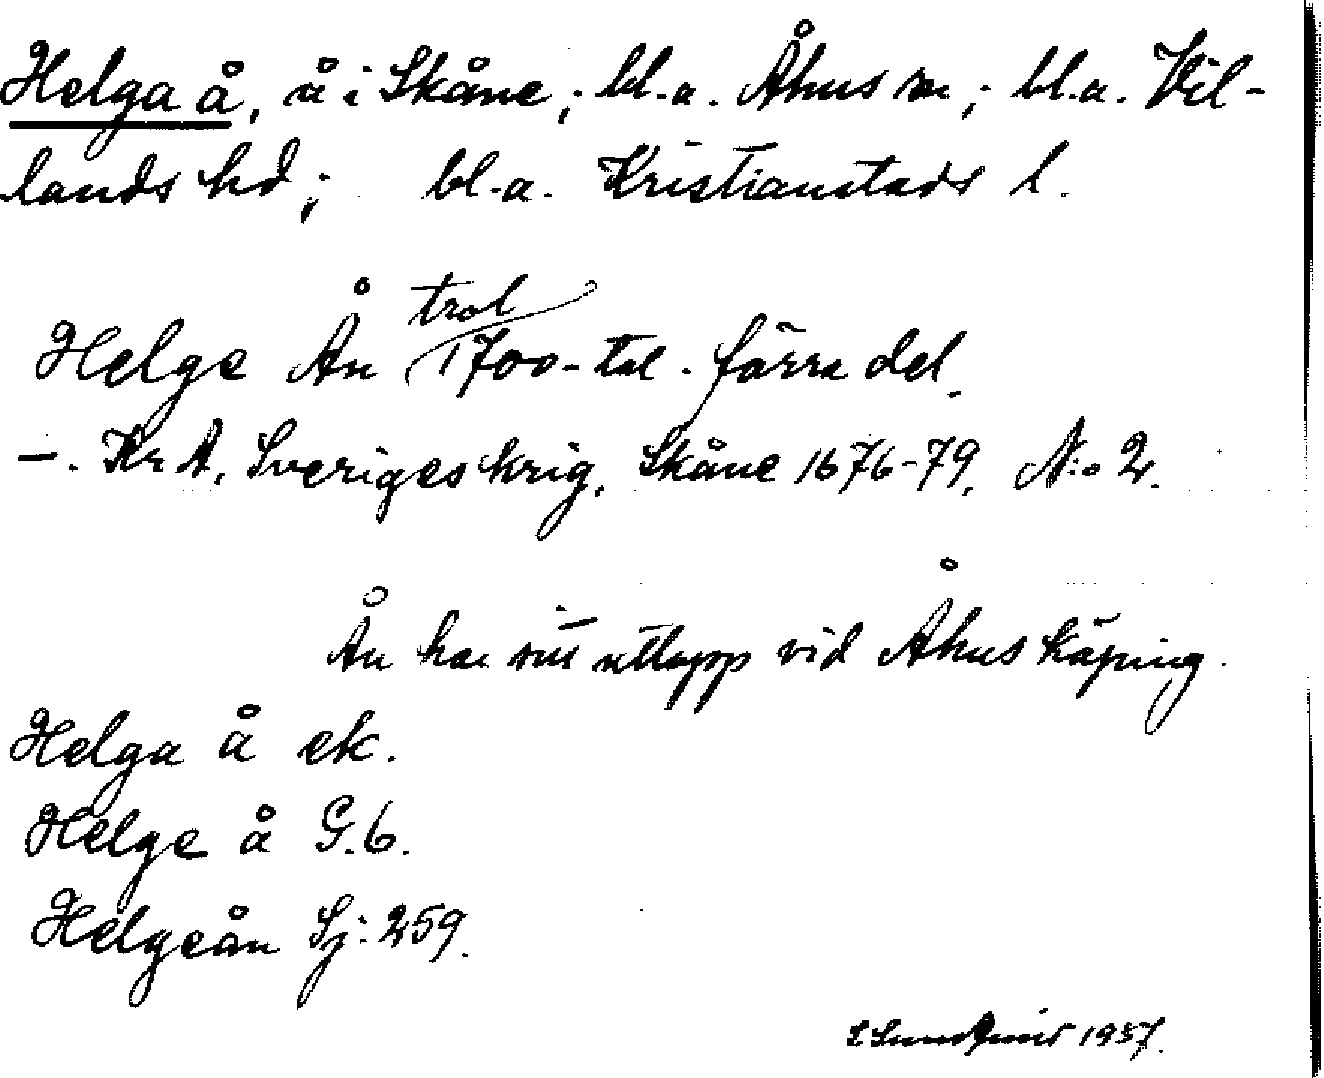 Helga å, å i Skåne; bl.a. Åhus sn; bl.a. Vil-
lands hd; bl.a. Kristianstads l.
trol
Helge Ån 1700-tal. förra del.
–. KrA, Sveriges krig, Skåne 1676-79, N:o 2.
Ån har sitt utlopp vid Åhus köping.
Helga å ek.
Helge å G.6.
Helgeån Sj: 259.
1937.